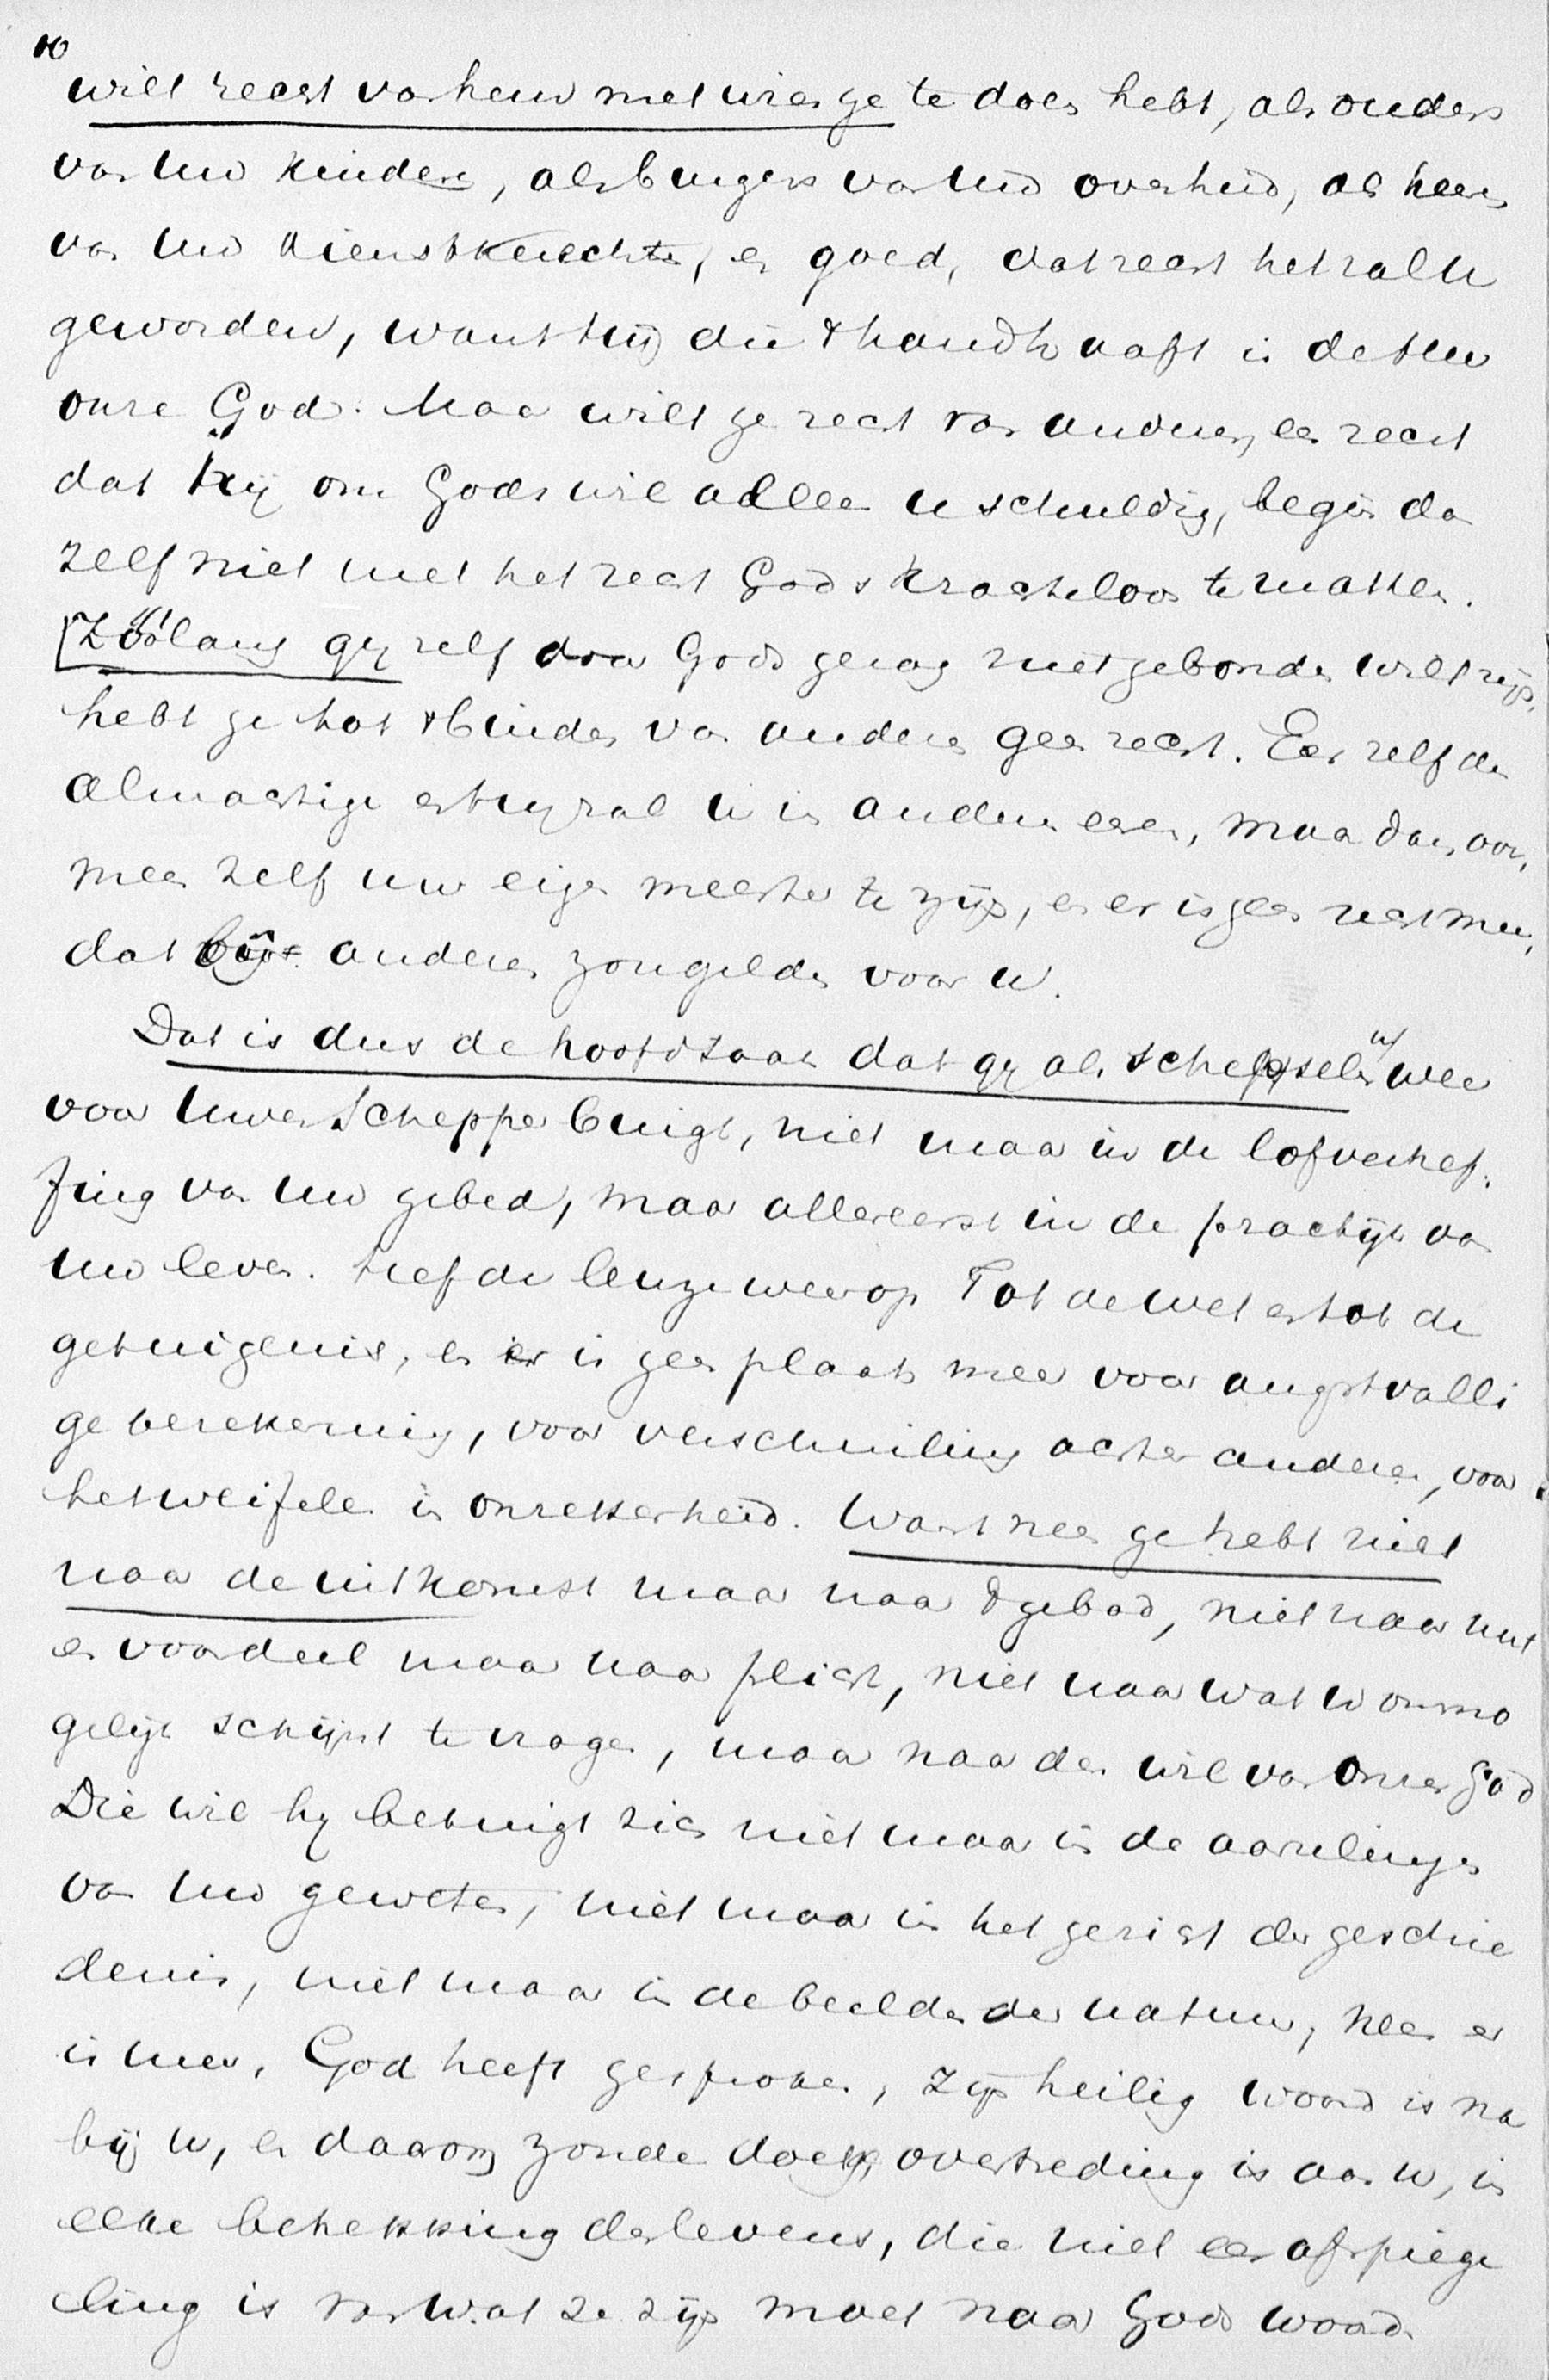 10
wilt recht van hem met wien ge te doen hebt, als ouders
van uw kinderen, als burgers van uw overheid, als heer
van uw dienstknechten, en goed, dat recht het zal u
geworden, want hij die 't handhaaft is de uw
onze God. Maar wilt ge recht van anderen, een recht
dat hij om Gods wil alleen u schuldig, begin dan
zelf niet met het recht Gods krachteloos te maken.
[Zóólang gij zelf door Gods gezag niet gebonden wilt zijn,
hebt ge tot 't binden van anderen geen recht. Eer zelf den
almachtige en hij zal u in anderen eeren, maar dan ook
meen zelf uw eigen meester te zijn, en er is geen recht meer,
dat bij anderen zou gelden voor u.
Dat is dus de hoofdzaak dat gij als schepselen weer
voor uwen Schepper buigt, niet maar in de lofverhef-
fing van uw gebed, maar allereerst in de practijk van
uw leven. Hef de leuze weer op Tot de wet en tot de
getuigenis, en er is geen plaats meer voor angstvalli
ge berekening, voor verschuiling achter anderen, voor
het weifelen in onzekerheid. Want neen ge hebt niet
naar de uitkomst maar naar 't gebod, niet naar nut
en voordeel maar naar plicht, niet naar wat u onmo
gelijk schijnt te vragen, maar naar den wil van onzen God
Die wil hij betuigt zich niet maar in de aarzelingen
van uw geweten, niet maar in het gericht der geschie
denis, niet maar in de beelden der natuur, neen er
is meer, God heeft gesproken, Zijn heilig woord is na
bij u, en daarom zonde doen, overtreding is aan u, in
elke betrekking des levens, die niet een afspiege
ling is van wat ze zijn moet naar Gods woord.